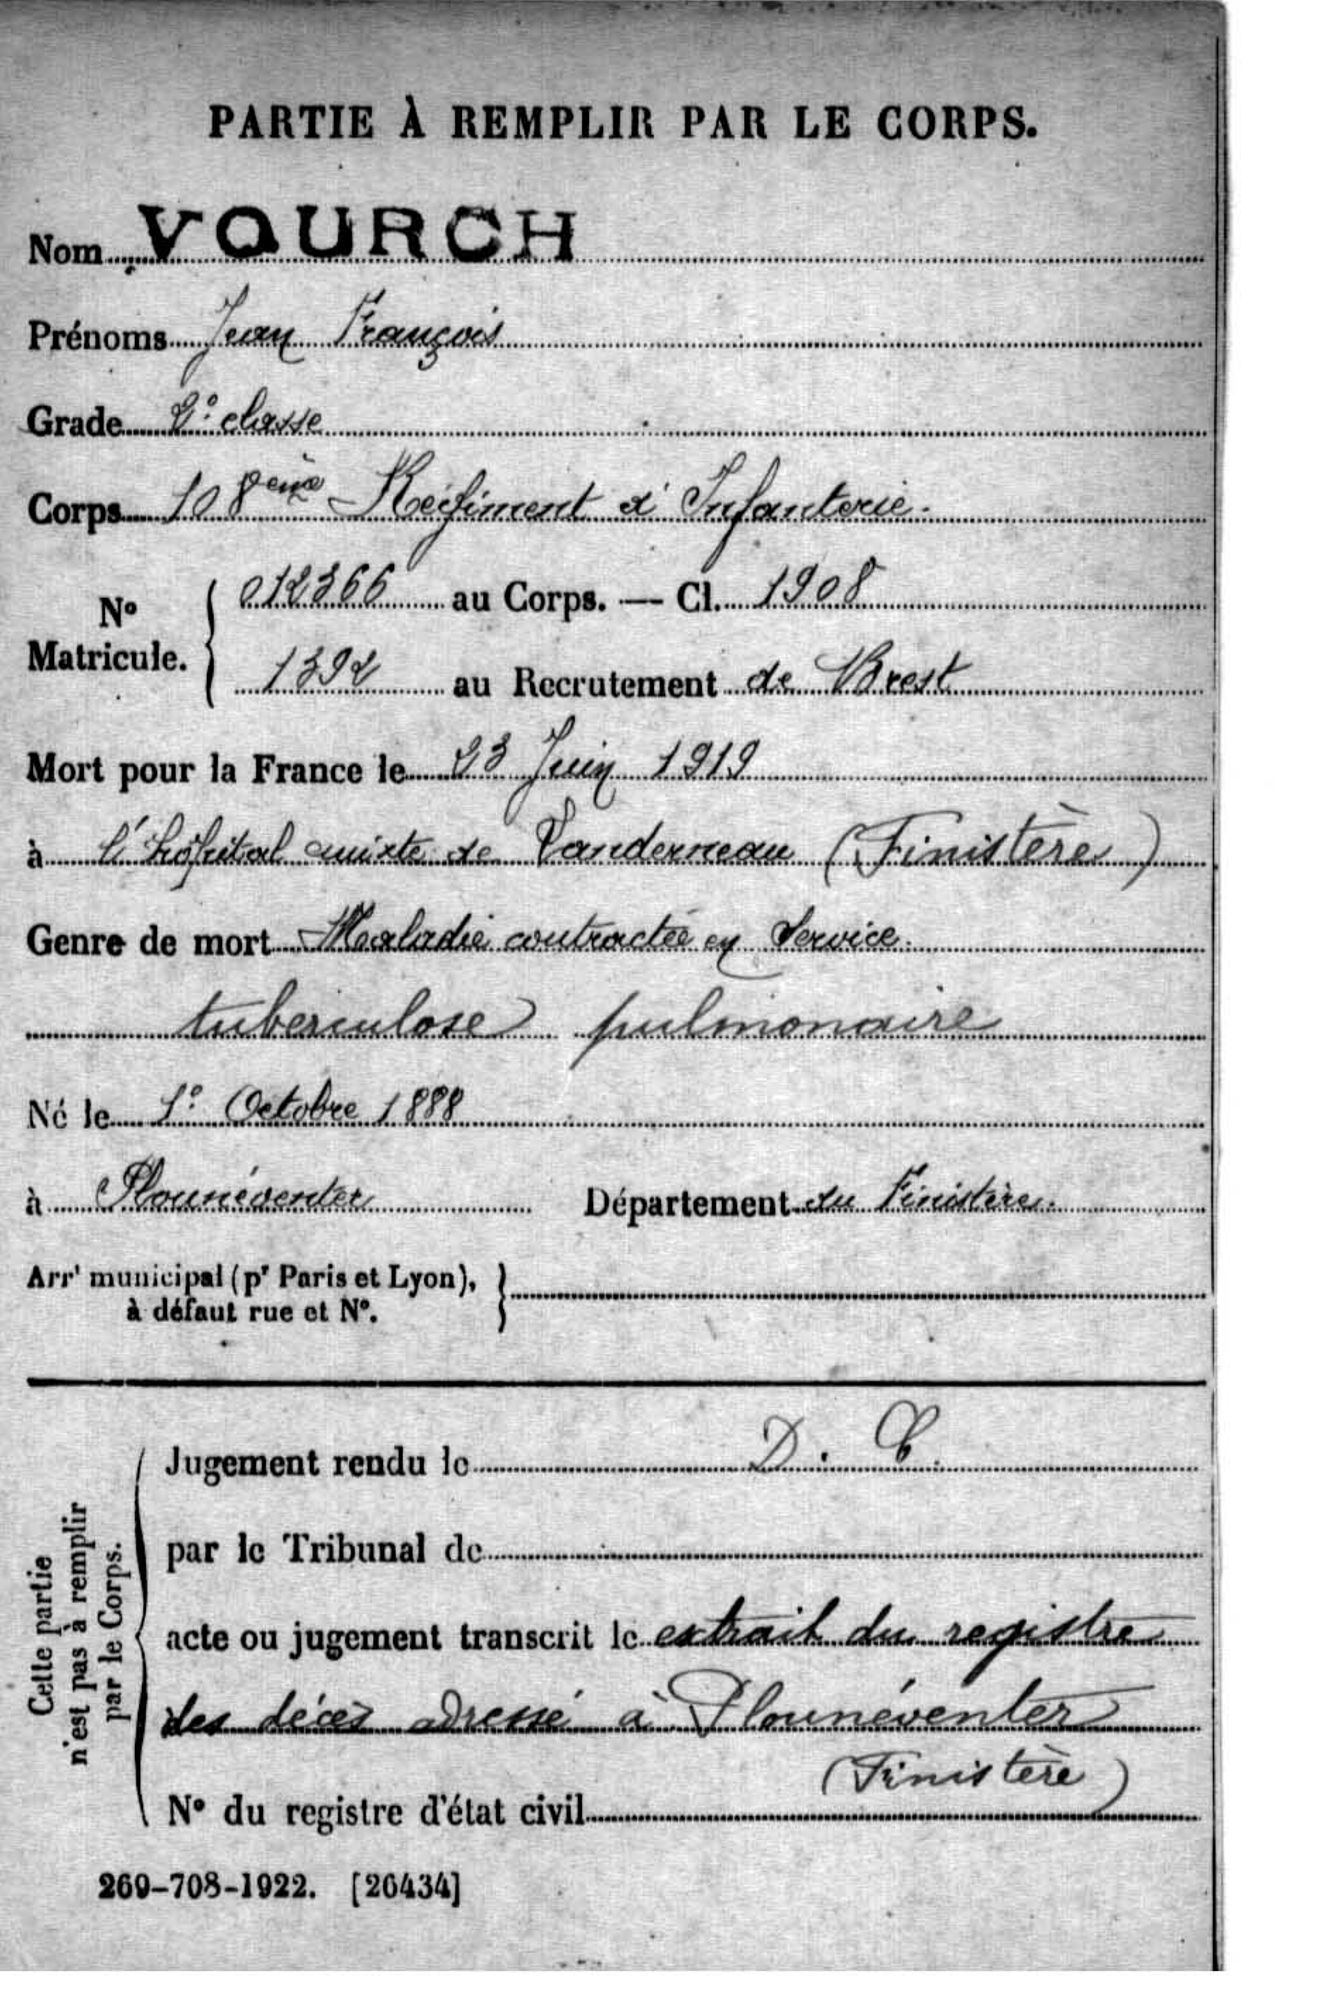 PARTIE À REMPLIR PAR LE CORPS.
Nom VOURCH
Prénoms Jean François
Grade 2e classe
Corps 108ème Régiment d'Infanterie.
No Matricule. 012366 au Corps. — Cl. 1908
1392 au Recrutement de Brest
Mort pour la France le 23 Juin 1919
à l'hôpital mixte de Landerneau (Finistère)
Genre de mort Maladie contractée en Service.
tuberculose pulmonaire
Né le 1o Octobre 1888
à Plounéventer Département du Finistère.
Arrt municipal (pr Paris et Lyon),
à défaut rue et No.
Cette partie
n'est pas à remplir
par le Corps.
Jugement rendu le D. C.
par le Tribunal de
acte ou jugement transcrit le extrait du registre
des décès adressé à Plounéventer
(Finistère)
No du registre d'état civil
269-708-1922. [26434]